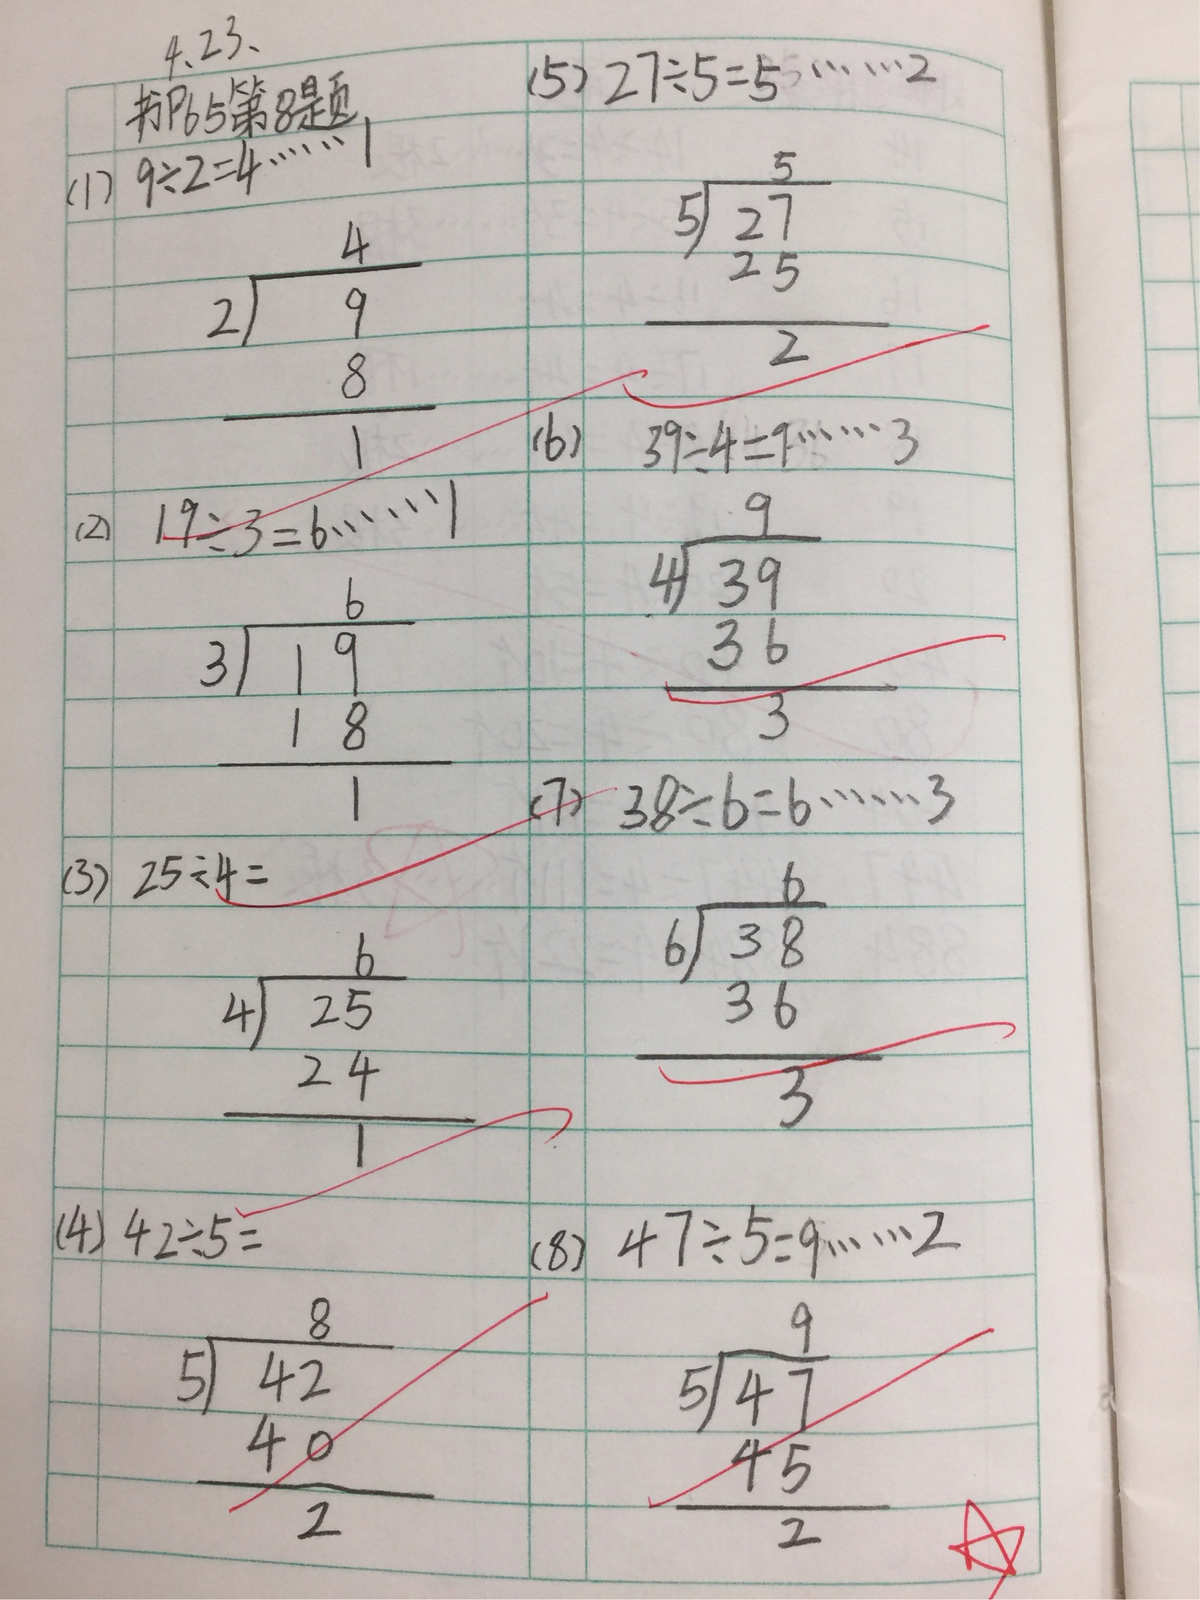 4.23、
书P65第8题
(1) 9÷2=4……1
4
2 9
8
1
(2) 19÷3=6……1
6
3 19
18
1
(3) 25÷4=
6
4 25
24
1
(4) 42÷5=
8
5 42
40
2
(5) 27÷5=5……2
5
5 27
25
2
(6) 39÷4=9……3
9
4 39
36
3
(7) 38÷6=6……3
6
6 38
36
3
(8) 47÷5=9……2
9
5 47
45
2